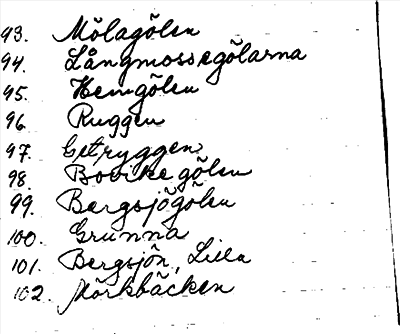 93. Mölagölen
94. Långmossegölarna
95. Hemgölen
96. Ruggen
97. Getryggen
98. Bovikegölen
99. Bergsjögölen
100. Grunna
101. Bergsjön, Lilla
102. Mörkbäcken